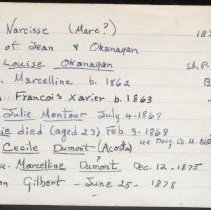 Narcisse (Marc?) 18
of Jean & Okanagan
Louise Okanagan Sh.P.
Marcelline b. 1862 B
Francois Xavier b. 1863
Julie Montour July 4-1867
died (aged 23) Feb. 3-1868
Cecile Dumont (Acosta) see
Marcelline Dumont Dec. 12-1875
Gilbert - June 25 - 1875